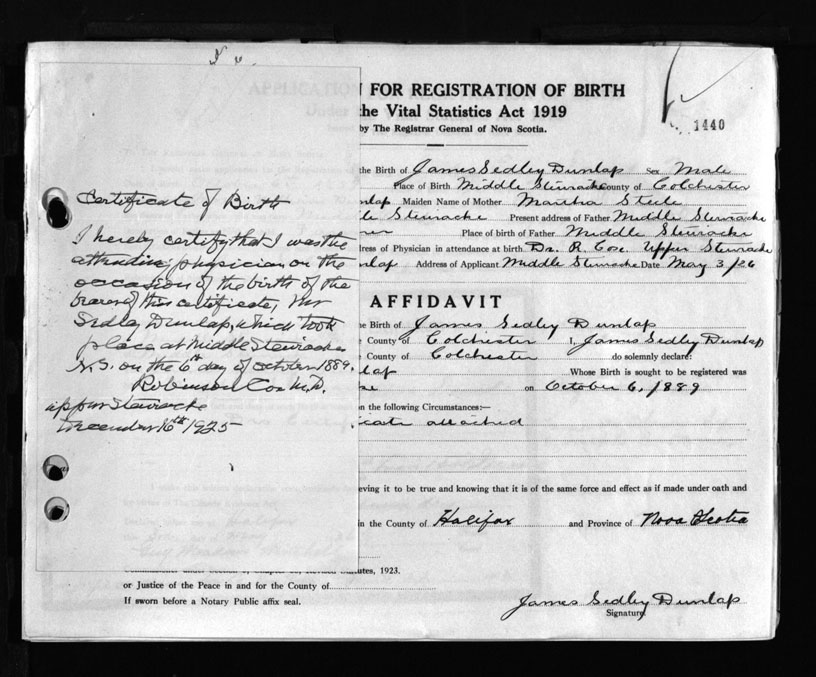 N FOR REGISTRATION OF BIRTH
the Vital Statistics Act 1919
by The Registrar General of Nova Scotia.
1440
the Birth of James Sedley Dunlap Sex Male
Place of Birth Middle Stewiacke County of Colchester
lap Maiden Name of Mother Martha Steele
le Stewiacke Present address of Father Middle Stewiacke
er Place of birth of Father Middle Stewiacke
ress of Physician in attendance at birth. Dr. R. Cox Upper Stewiacke
lap Address of Applicant Middle Stewiacke Date May 3/26
AFFIDAVIT
e Birth of James Sedley Dunlap
e County of Colchester I, James Sedley Dunlap
e County of Colchester do solemnly declare:
lap ...Whose Birth is sought to be registered was
on October 6, 1889
n the following Circumstances:—
icate attached
eving it to be true and knowing that it is of the same force and effect as if made under oath and
in the County of Halifax and Province of Nova Scotia
utes, 1923.
or Justice of the Peace in and for the County of
If sworn before a Notary Public affix seal.
James Sedley Dunlap
Signature
Certificate of Birth
I hereby certify that I was the
attending physician on the
occasion of the birth of the
bearer of this certificate, Mr
Sedley Dunlap, which took
place at Middle Stewiacke
N.S. on the 6th day of October 1889.
Robinson Cox M.D.
upper Stewiacke
December 16th 1925